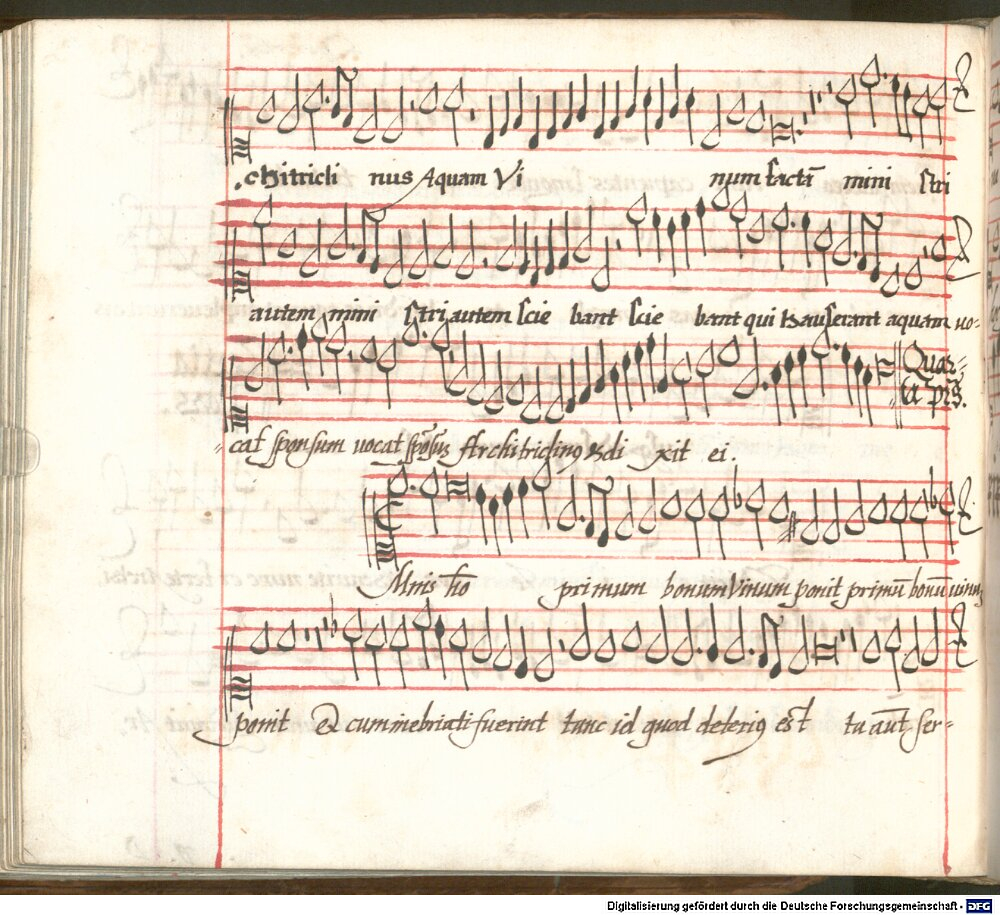 chitricli nus Aquam Vi num factā mini stri
autem mini stri autem scie bant scie bant qui hauserant aquam uo-
Quar-
ta prs.
cat sponsum uocat spōsūs Architriclinꝰ & di xit ei.
Mnis hō primum bonum Vinum ponit primū bonū uinum
ponit & cum inebriati fuerint tunc id quod deteriꝰ est tu aūt ser-
Digitalisierung gefördert durch die Deutsche Forschungsgemeinschaft - DFG